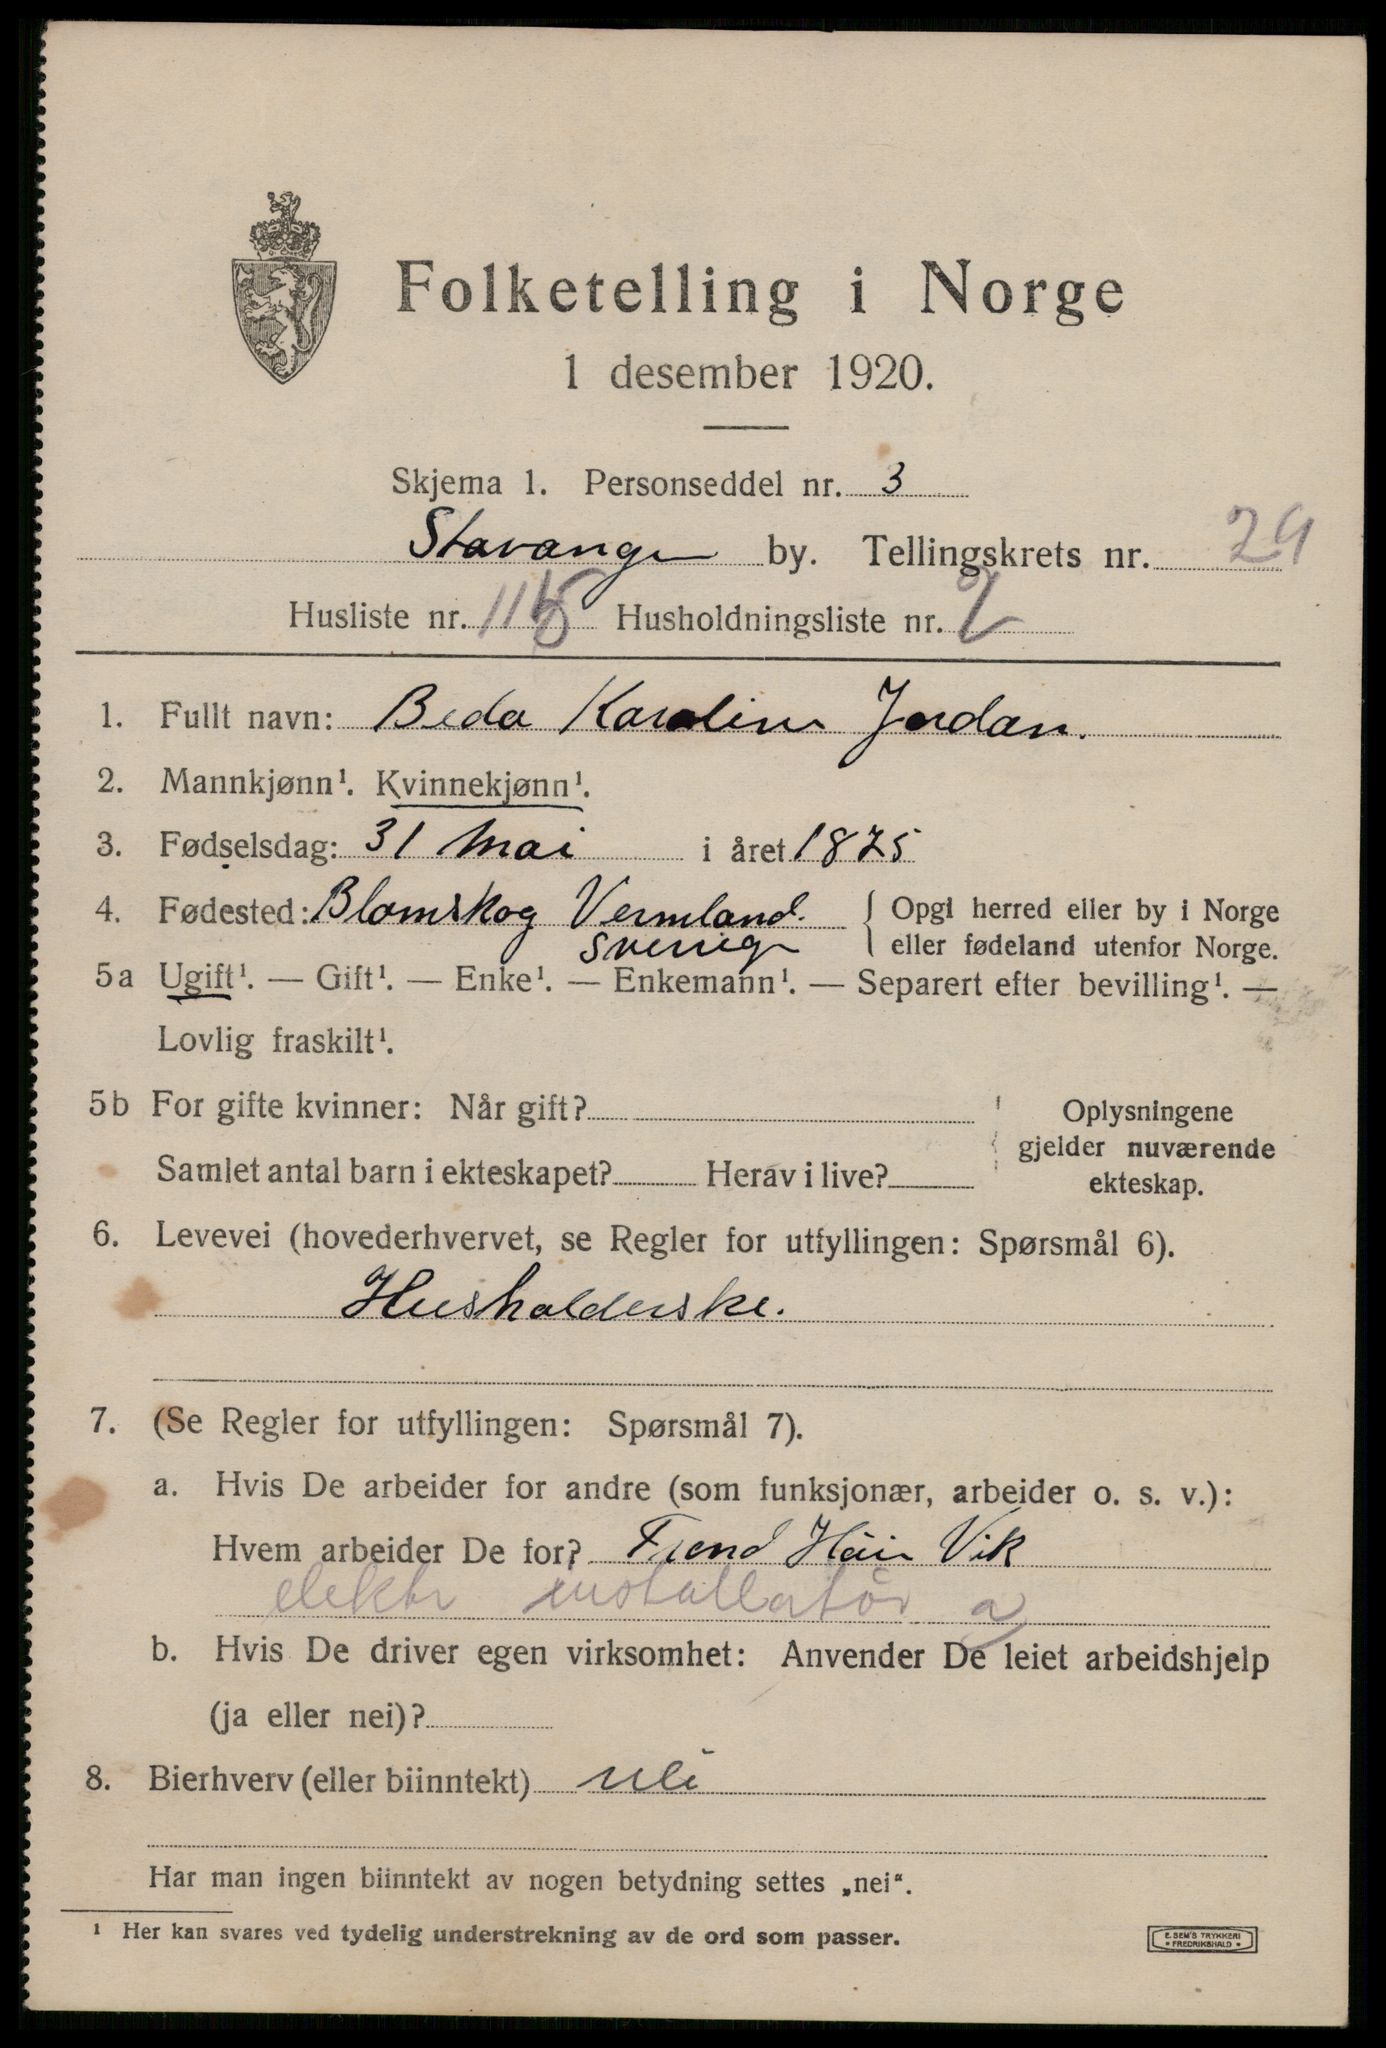 Folketelling i Norge
1 desember 1920.
Skjema 1. Personseddel nr. 3
Stavanger by. Tellingskrets nr. 29
Husliste nr. 115 Husholdningsliste nr. 2
1. Fullt navn: Beda Karoline Jordan.
2. Mannkjønn¹. Kvinnekjønn¹.
3. Fødselsdag: 31 Mai i året 1875
4. Fødested: Blomskog Vermland. { Opgi herred eller by i Norge
Sverige eller fødeland utenfor Norge.
5a Ugift¹. — Gift¹. — Enke¹. — Enkemann¹. — Separert efter bevilling¹. —
Lovlig fraskilt¹.
5b For gifte kvinner: Når gift? Oplysningene
gjelder nuværende
Samlet antal barn i ekteskapet? Herav i live? ekteskap.
6. Levevei (hovederhvervet, se Regler for utfyllingen: Spørsmål 6).
Husholderske.
7. (Se Regler for utfyllingen: Spørsmål 7).
a. Hvis De arbeider for andre (som funksjonær, arbeider o. s. v.):
Hvem arbeider De for? Vik
elektr installatør a
b. Hvis De driver egen virksomhet: Anvender De leiet arbeidshjelp
(ja eller nei)?
8. Bierhverv (eller biinntekt) nei
Har man ingen biinntekt av nogen betydning settes „nei“.
¹ Her kan svares ved tydelig understrekning av de ord som passer.
E. SEM'S TRYKKERI
• FREDRIKSHALD •